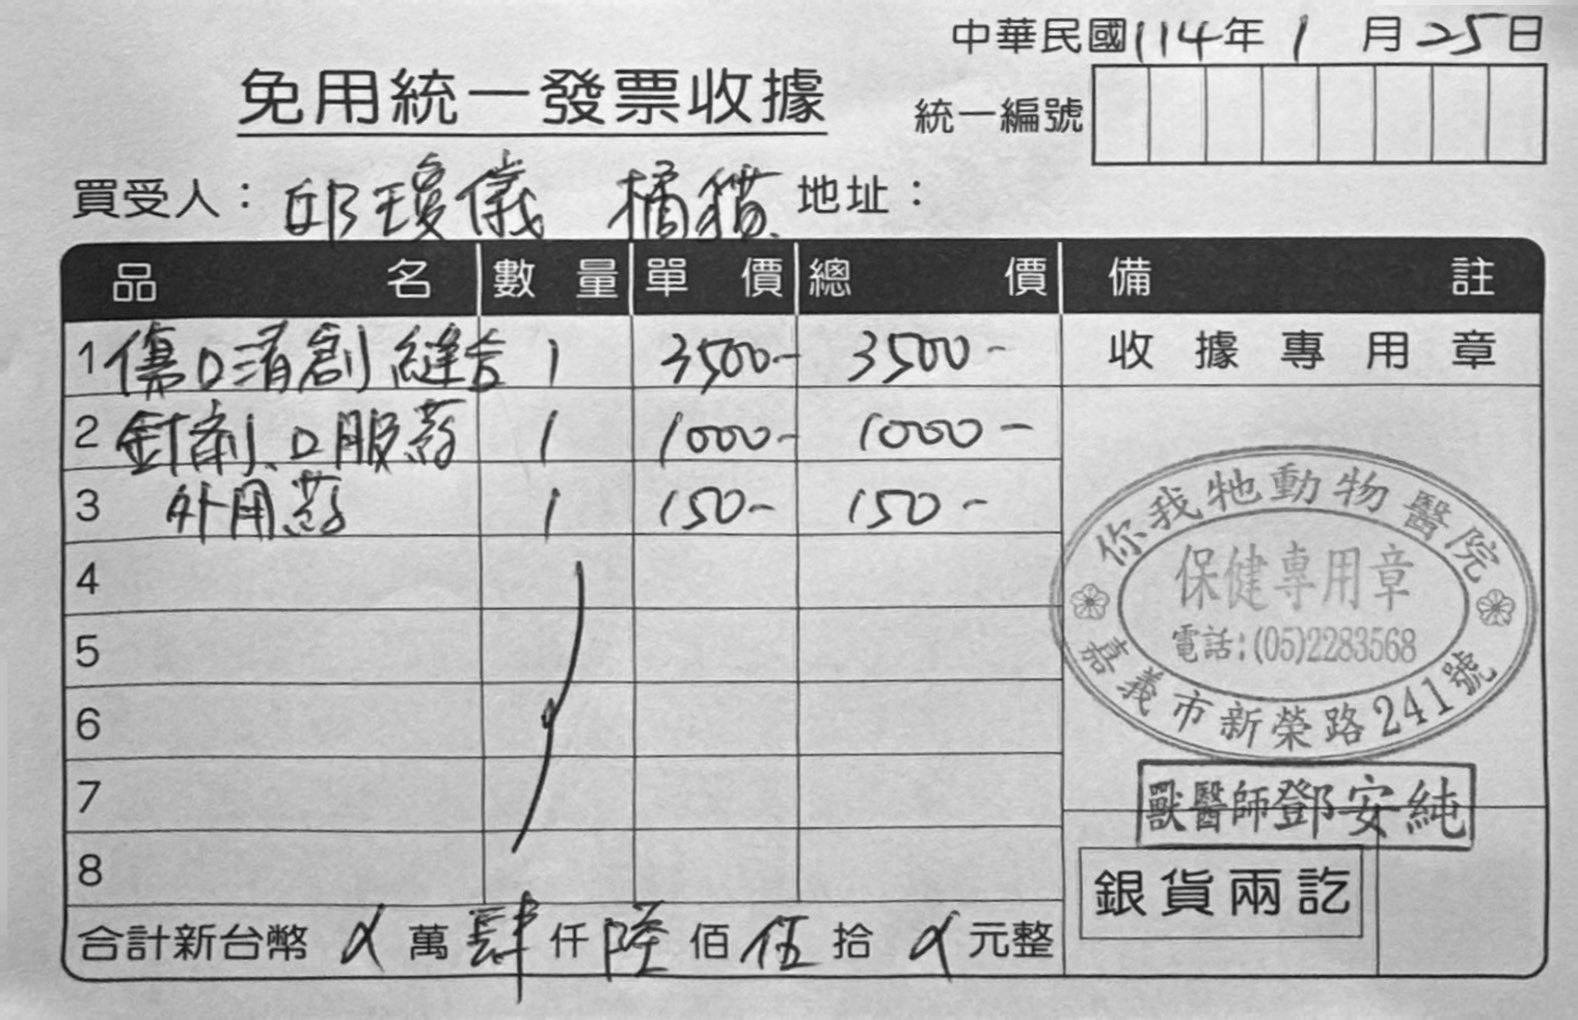 中華民國114年1月25日
免用統一發票收據
統一編號
買受人：邱瓊儀 橘貓 地址：
品名 數量 單價 總價 備註
1 傷口清創縫合 1 3500- 3500- 收據專用章
2 針劑、口服葯 1 1000- 1000-
3 外用葯 1 150- 150-
4
5
6
7
8
你我牠動物醫院
保健專用章
電話:(05)2283568
嘉義市新榮路241號
獸醫師鄧安純
銀貨兩訖
合計新台幣 萬肆仟陸佰伍拾 元整